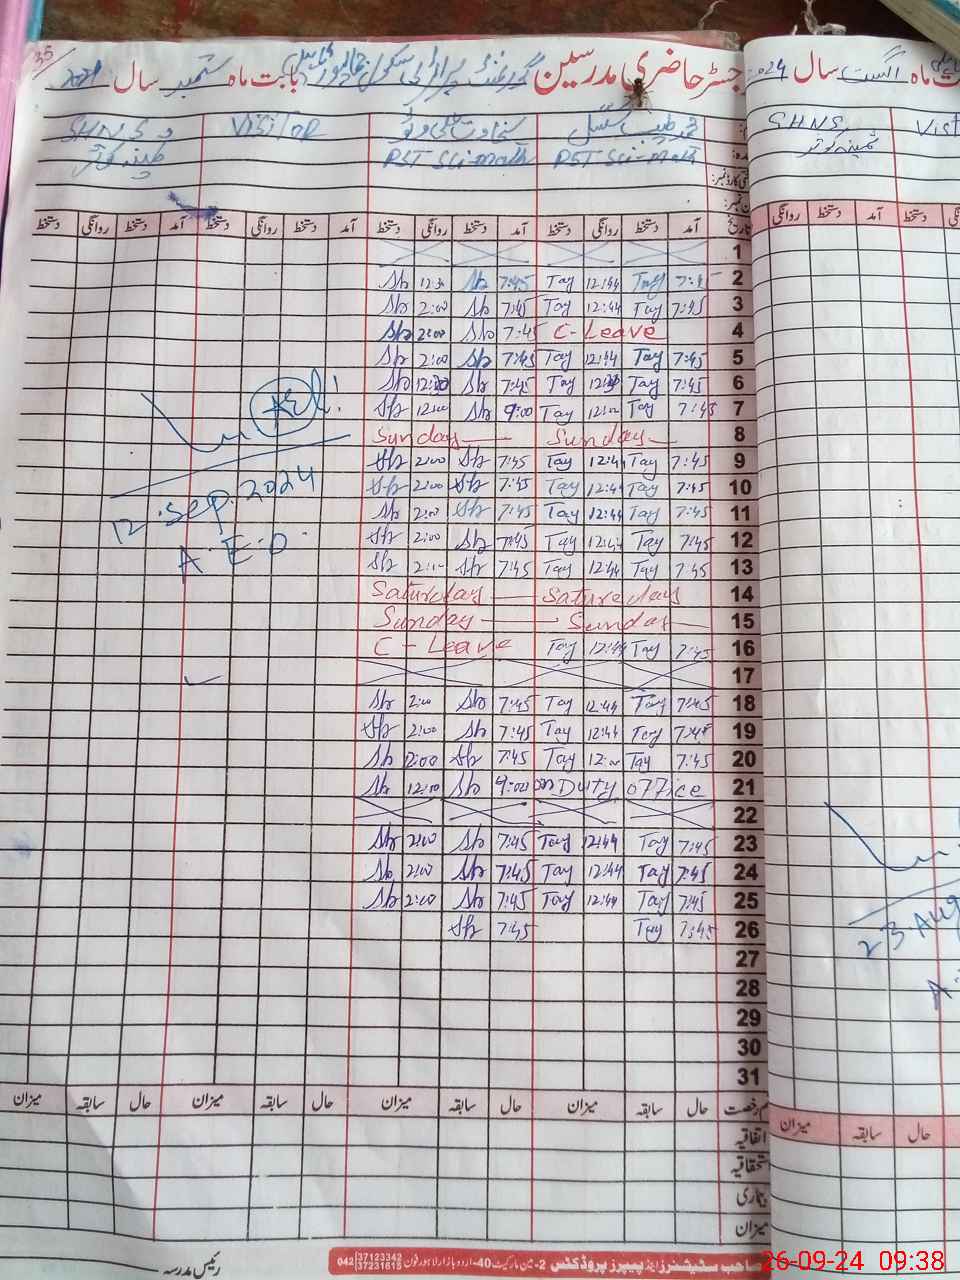 35
جسٹر حاضری مدرسین گورنمنٹ پرائمری سکول بابت ماہ ستمبر سال 2024
VISITOR
PST Sci-Math PST Sci-Math
دستخط روانگی دستخط آمد دستخط روانگی دستخط آمد دستخط روانگی دستخط آمد دستخط روانگی دستخط آمد تاریخ
1
7:45 Tay 12:44 Tay 7:45 Sb 12:30 Sb 2
7:45 Tay 12:44 Tay 7:45 Sb 2:00 Sb 3
C-Leave 7:45 Sb 2:00 Sb 4
7:45 Tay 12:44 Tay 7:45 Sb 2:00 Sb 5
7:45 Tay Tay 7:45 Sb Sb 6
7:45 Tay 12:00 Tay 9:00 Sb 12:00 Sb 7
Sunday Sunday 8
7:45 Tay 12:44 Tay 7:45 Sb 2:00 Sb 9
7:45 Tay 12:44 Tay 7:45 Sb 2:00 Sb 10
7:45 Tay 12:44 Tay 7:45 Sb 2:00 Sb 11
7:45 Tay 12:44 Tay 7:45 Sb 2:00 Sb 12
7:45 Tay 12:44 Tay 7:45 Sb 2:00 Sb 13
Saturday Satureday 14
Sunday Sunday 15
C-Leave Tay 12:44 Tay 7:45 16
17
7:45 Tay 12:44 Tay 7:45 Sb 2:00 Sb 18
Tay 12:44 Tay 7:45 Sb 2:00 Sb 19
7:45 Tay 12:00 Tay 7:45 Sb Sb 20
on Duty office 9:00 Sb 12:00 Sb 21
22
7:45 Tay 12:44 Tay 7:45 Sb 2:00 Sb 23
7:45 Tay 12:44 Tay 7:45 Sb 2:00 Sb 24
7:45 Tay 12:44 Tay 7:45 Sb 2:00 Sb 25
7:45 Tay 7:45 Sb 26
27
28
29
30
31
12.Sep.2024
A.E.O.
میزان سابقہ حال میزان سابقہ حال میزان سابقہ حال میزان سابقہ حال
اتفاقیہ
استحقاقیہ
بیماری
میزان
رئیس مدرسہ
صاحب سٹیشنرز اینڈ پیپرز پروڈکٹس 2-مین مارکیٹ 40-اردو بازار لاہور فون 042 37123342 37231615
ماہ اگست سال 2024
SHNS,
روانگی دستخط آمد دستخط
23 Aug
میزان سابقہ حال
26-09-24 09:38